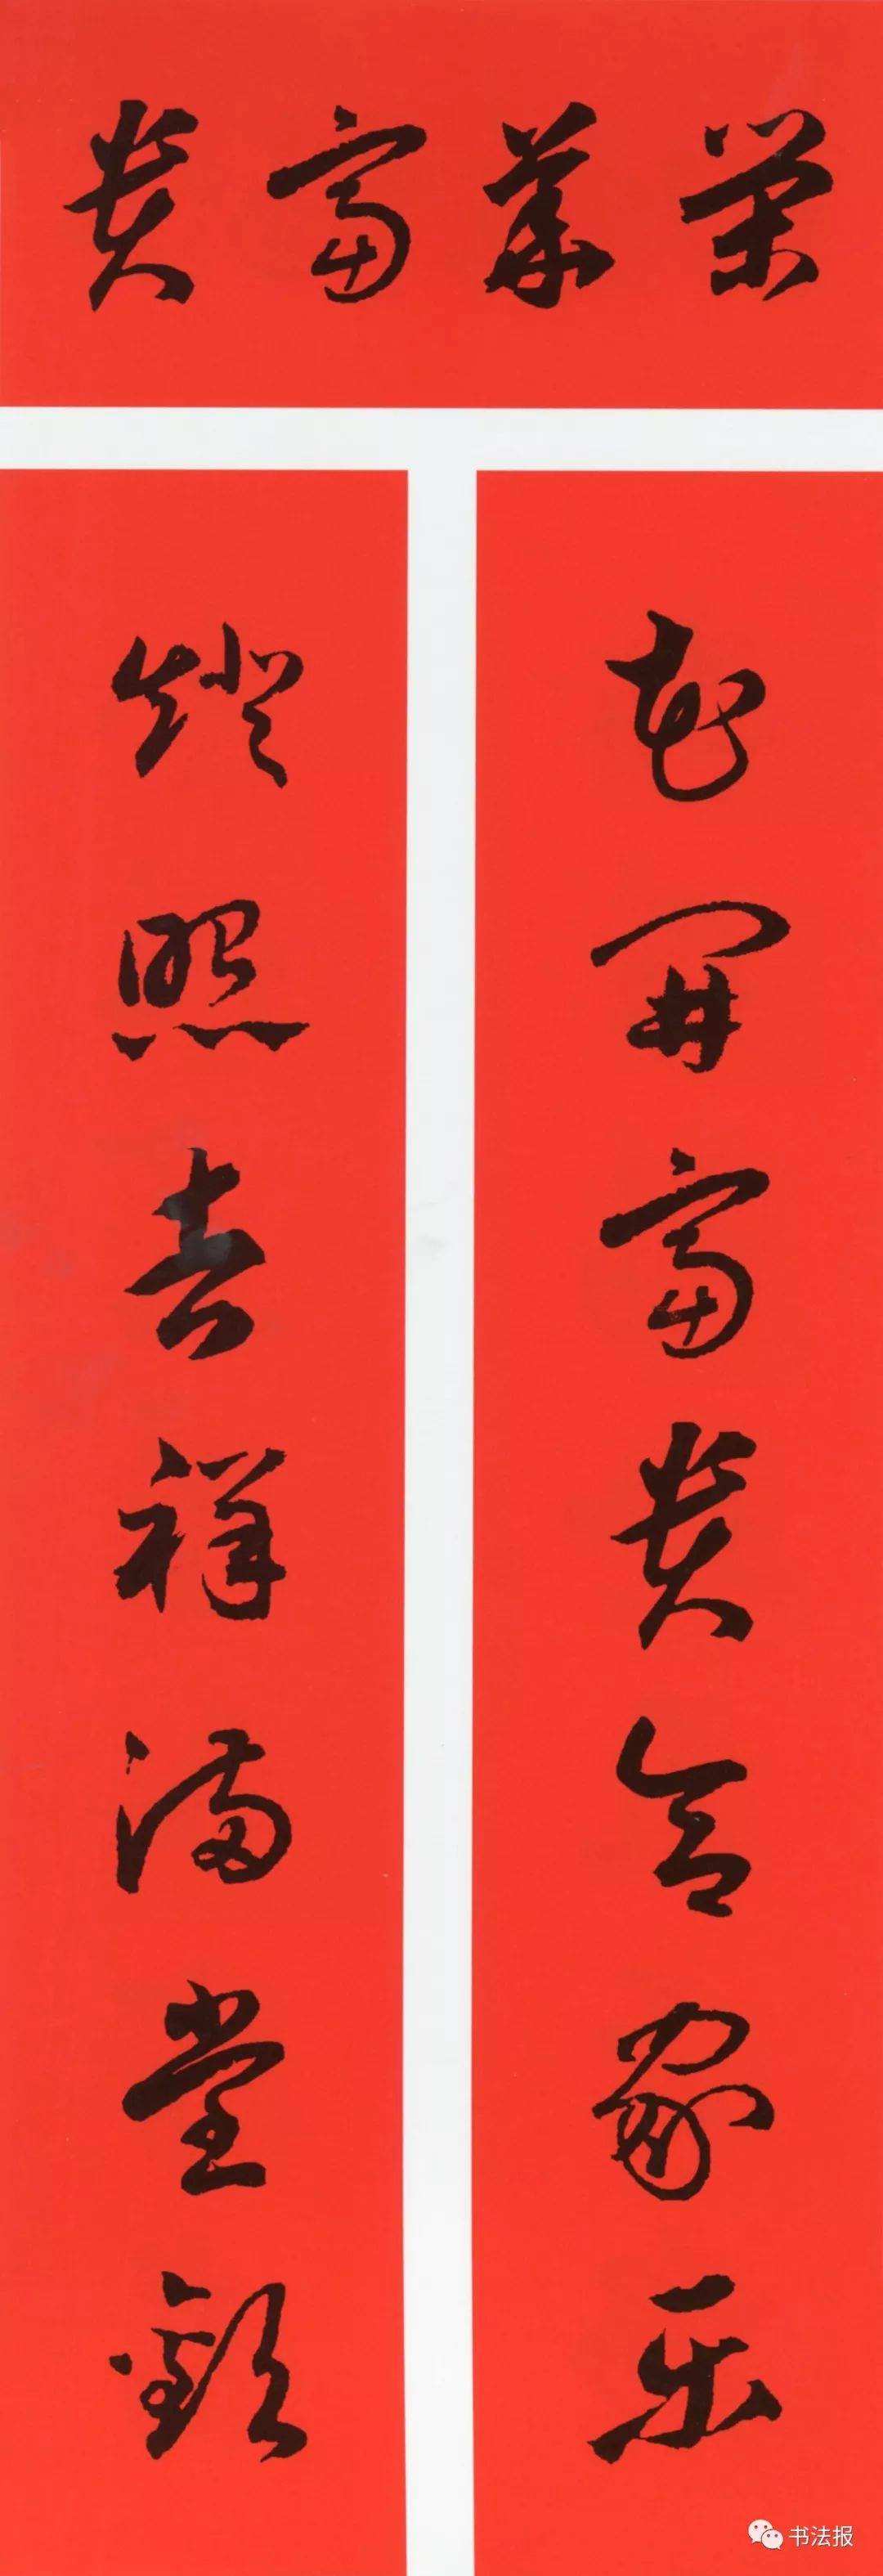 荣华富贵
花开富贵合家乐
灯照吉祥满堂欢
书法报